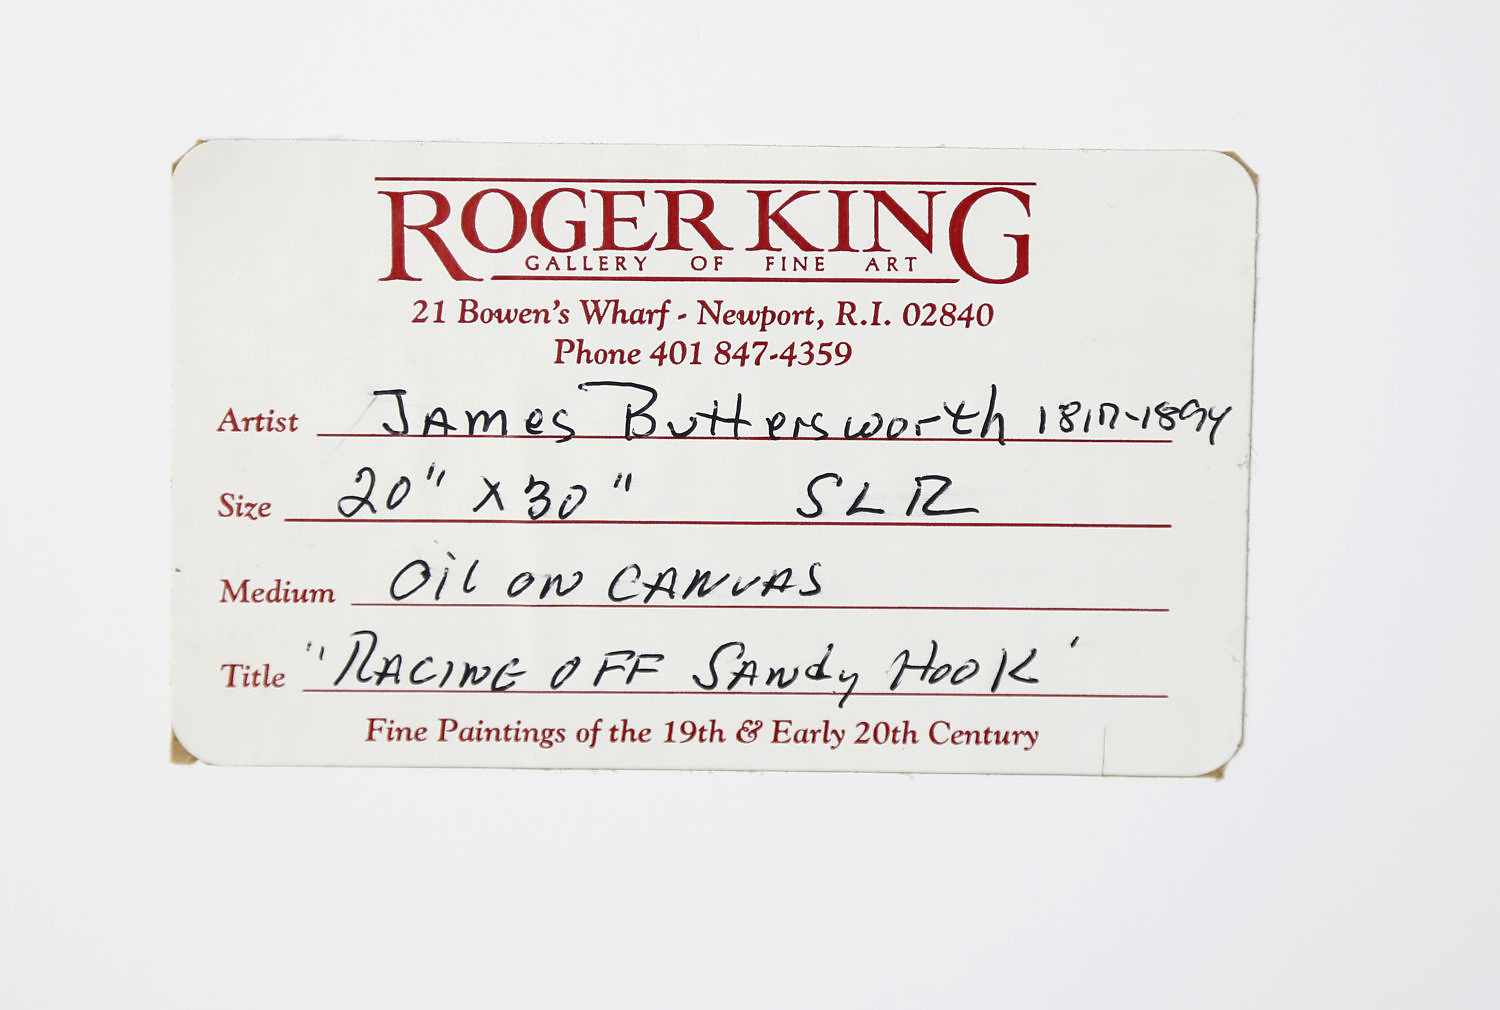 ROGER KING
GALLERY OF FINE ART
21 Bowen's Wharf - Newport, R.I. 02840
Phone 401 847-4359
Artist James Buttersworth 1817-1894
Size 20" x 30" SLR
Medium Oil on CANVAS
Title "RACING OFF SANdy HOOK'
Fine Paintings of the 19th & Early 20th Century